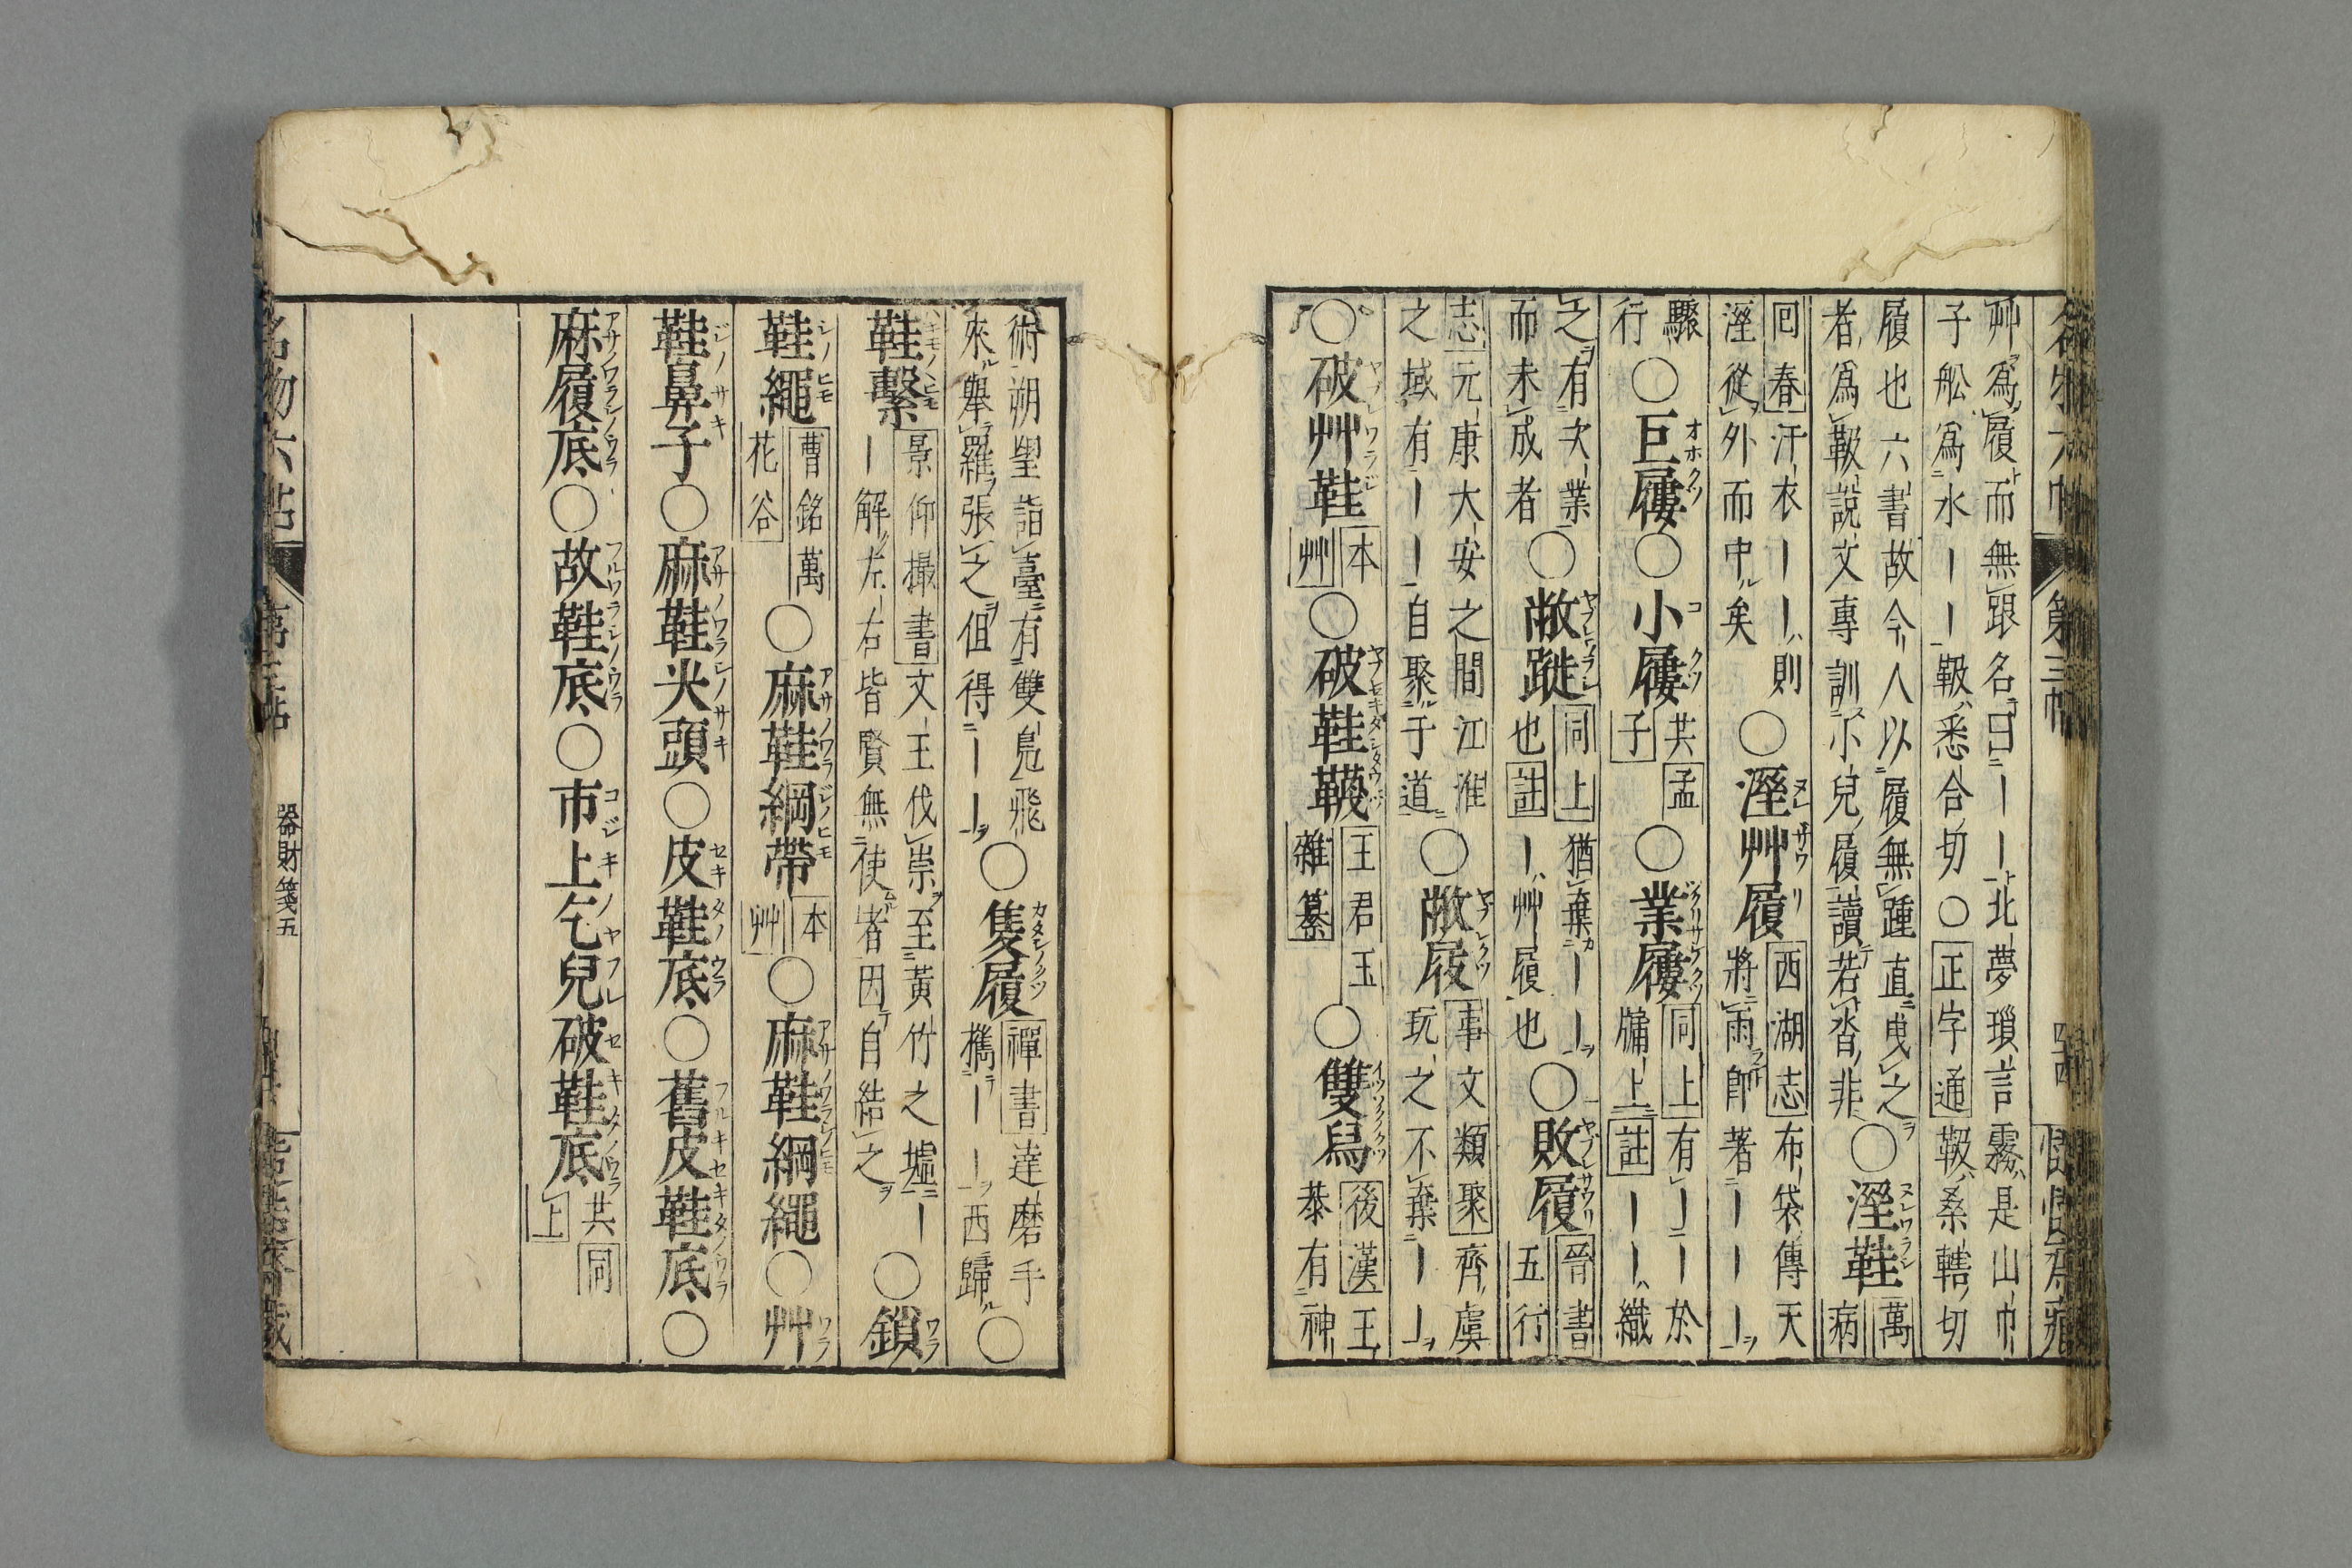 艸爲履而無跟名曰〡〡北夢瑣言霧是山巾
子舩爲水〡〡靸悉合切○正字通靸桑轄切
履也六書故今人以履無踵直曳之○溼鞋萬
者爲靸說文專訓小兒履讀若沓非 病
回春汗衣〡〡則○溼艸履西湖志布袋傳天
溼從外而中矣 將雨卽著〡〡〡
驟○巨屨○小屨共孟○業屨同上有〡〡於
行 子 牖上註〡〡織
之有次業○敝蹝同上猶棄〡〡○敗履晉書
而未成者 也註〡艸履也 五行
志元康大安之間江淮○敝屐事文類聚齊虞
之域有〡〡自聚于道 玩之不棄〡〡
○破艸鞋本艸○破鞋䩺王君玉雜纂○雙舄後漢王
恭有神
術朔望詣臺有雙鳧飛○隻履禪書達磨手○
來舉羅張之但得〡〡 攜〡〡西歸
鞋繫景仰撮書文王伐崇至黃竹之墟〡○鎖
〡解左右皆賢無使者因自結之
鞋繩曹銘萬花谷○麻鞋綱帶本艸○麻鞋綱繩○艸
鞋鼻子○麻鞋尖頭○皮鞋底○舊皮鞋底○
麻履底○故鞋底○市上乞兒破鞋底共同上
名物六帖 第三帖 器財箋五